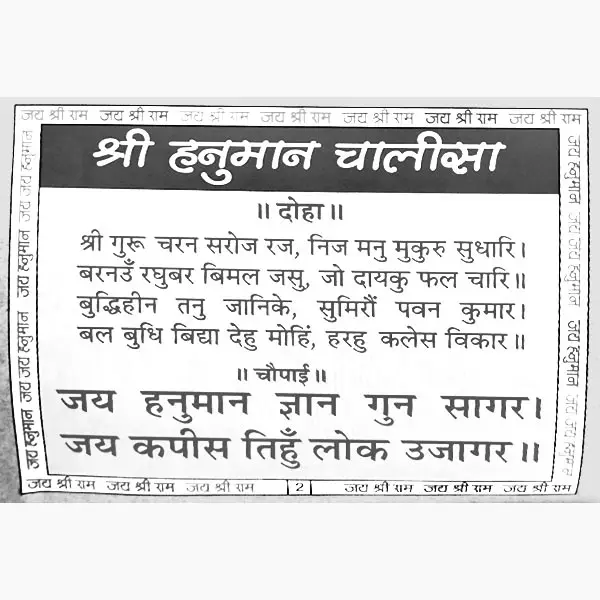 जय श्री राम जय श्री राम जय श्री राम जय श्री राम जय श्री राम जय श्री राम जय श्री राम
श्री हनुमान चालीसा
॥ दोहा ॥
श्री गुरू चरन सरोज रज, निज मनु मुकुरु सुधारि।
बरनउँ रघुबर बिमल जसु, जो दायकु फल चारि॥
बुद्धिहीन तनु जानिके, सुमिरौं पवन कुमार।
बल बुधि बिद्या देहु मोहिं, हरहु कलेस विकार॥
॥ चौपाई ॥
जय हनुमान ज्ञान गुन सागर।
जय कपीस तिहुँ लोक उजागर॥
जय हनुमान जय जय हनुमान जय जय हनुमान
जय हनुमान जय जय हनुमान जय जय हनुमान
जय श्री राम जय श्री राम जय श्री राम 2 जय श्री राम जय श्री राम जय श्री राम